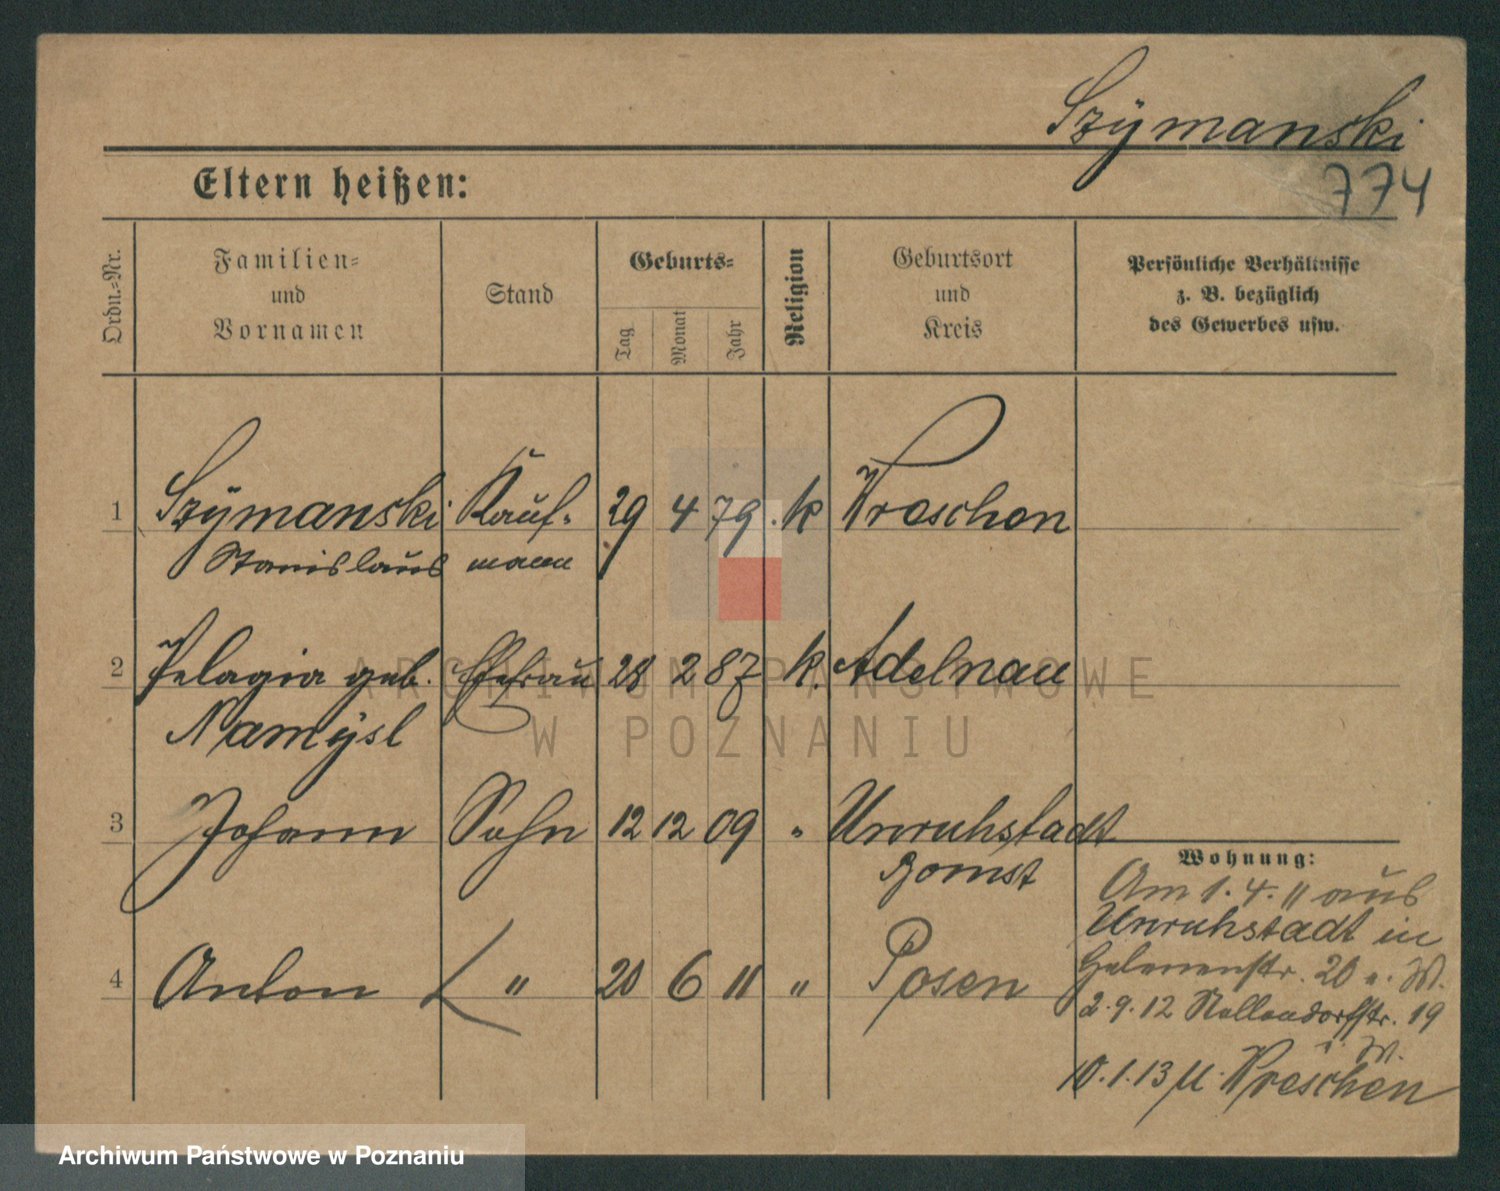 Szymanski
774
Eltern heißen:
Ordn.-Nr.
Familien-
und
Vornamen
Stand
Geburts-
Tag
Monat
Jahr
Religion
Geburtsort
und
Kreis
Persönliche Verhältnisse
z. B. bezüglich
des Gewerbes usw.
1 Szymanski Kauf- 29 4 79 . k Wreschen
Stanislaus mann
2 Pelagia geb. Ehefrau 28 2 87 k. Adelnau
Namysl
3 Johann Sohn 12 12 09 " Unruhstadt
Bomst
4 Anton " 20 6 11 " Posen
Wohnung:
Am 1.4.11 aus
Unruhstadt in
Helenenstr. 20 a. W.
2.9.12 Nollendorfstr. 19
W.
10.1.13 n. Wreschen
ARCHIWUM PAŃSTWOWE
W POZNANIU
Archiwum Państwowe w Poznaniu